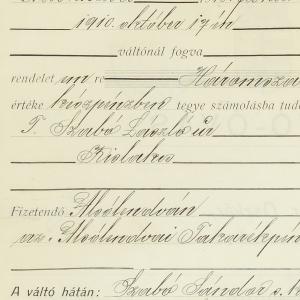 1910. október 17 én
váltónál fogva
rendelet un re Háromszá
értéke készpénzben tegye számolásba tud
T. Szabó László úr
Kislakos
Fizetendő Alsólendván
az Alsólendvai Takarékpén
A váltó hátán: Szabó Sándor s.